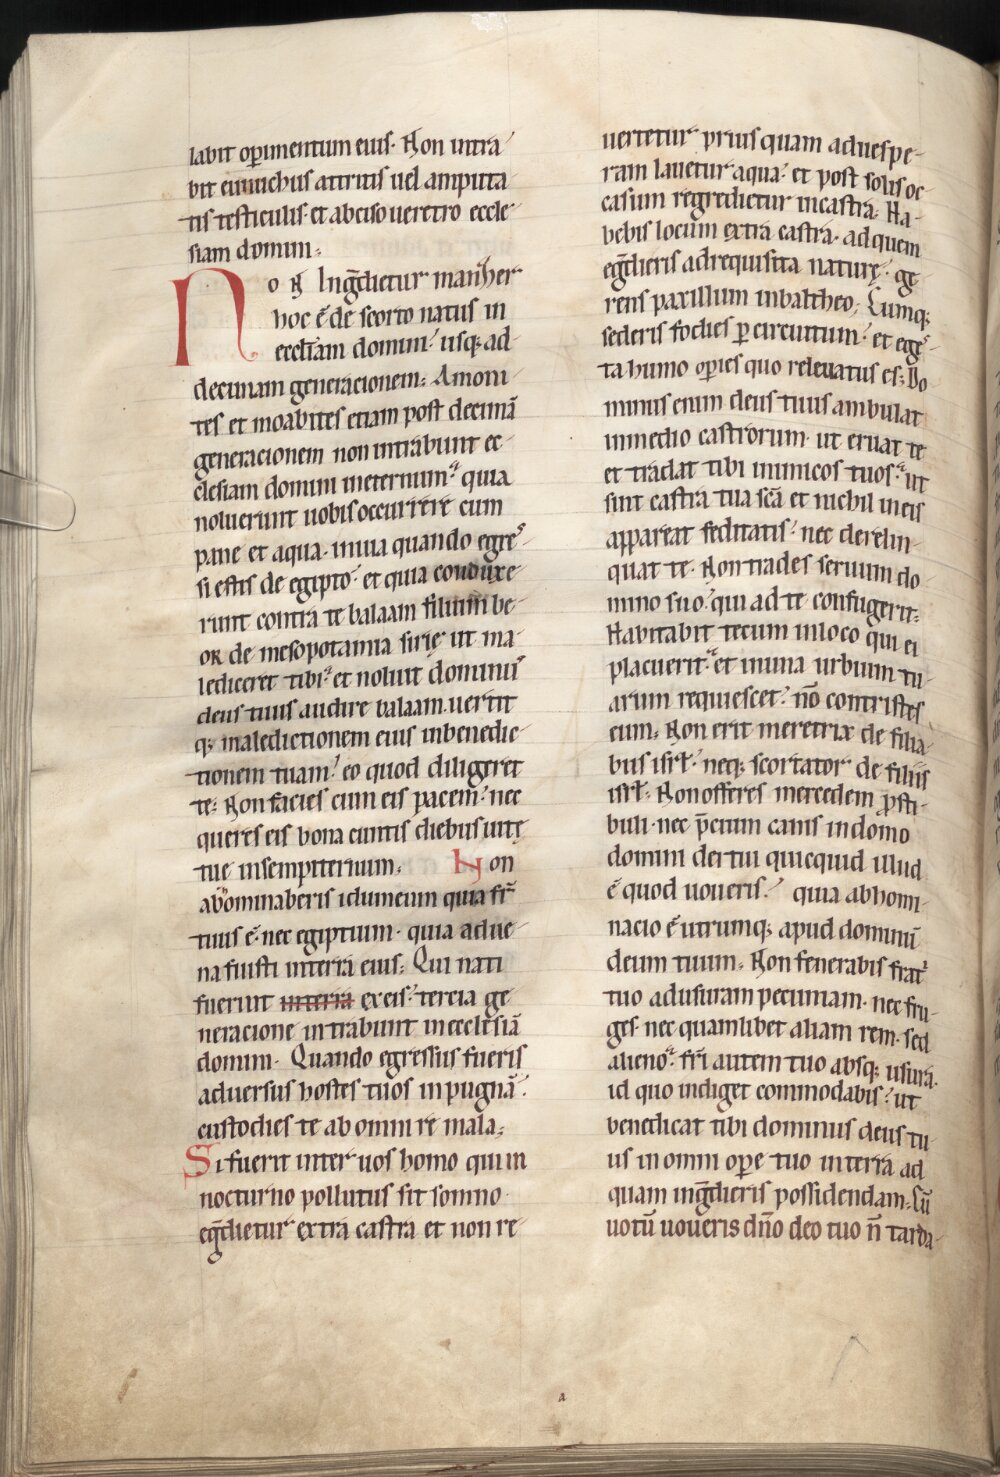 labit op̲imentum eius. Non intra
bit eunuchus attritis uel amputa
tis testiculis. et absciso ueretro eccle
siam domini;
No N Ingr̄dietur manher
hoc ē de scorto natus in
eccl̄iam domini. usq; ad
decimam generacionem; Amoni
tes et moabites etiam post decimā
generacionem non intrabunt ec
clesiam domini ineternum. quia
noluerunt uobis occurrere cum
pane et aqua. inuia quando egres
si estis de egipto. et quia conduxe
runt contra te balaam filium be
or de mesopotamia sirię ut ma
lediceret tibi. et noluit dominus
deus tuus audire balaam. uertit
q; maledictionem eius inbenedic
tionem tuam. eo quod diligeret
te; Non facies cum eis pacem. nec
queres eis bona cuntis diebus uitę
tuę insempiternum. Non
abominaberis idumeum quia fr̄
tuus ē. nec egiptium. quia adue
na fuisti interra eius; Qui nati
fuerint interra exeis. tercia ge
neracione intrabunt inecclesiā
domini. Quando egressus fueris
aduersus hostes tuos inpugnā.
custodies te ab omni re mala;
Si fuerit inter uos homo qui in
nocturno pollutus sit somno.
egr̄dietur extra castra et non re
uertetur prius quam aduespe
ram lauetur aqua. et post solis oc
casum regredietur incastra; Ha
bebis locum extra castra. ad quem
egr̄dieris adrequisita naturę. ge
rens paxillum inbaltheo; Cumq;
sederis fodies p̲ circuitum. et eges
ta humo op̲ies quo releuatus es; Do
minus enim deus tuus ambulat
inmedio castrorum. ut eruat te
et tradat tibi inimicos tuos. ut
sint castra tua sc̄a et nichil ineis
appareat feditatis. nec derelin
quat te. Non trades seruum do
mino suo. qui ad te confugerit;
Habitabit tecum inloco qui ei
placuerit. et inuna urbium tu
arum requiescet. nō contristes
eum; Non erit meretrix de filia
bus isrł. neq; scortator de filiis
isrł; Non offeres mercedem p̄osti
buli. nec p̄cium canis indomo
domini dei tui quicquid illud
ē quod uoueris. quia abhomi
nacio ē utrumq; apud dominū
deum tuum; Non fenerabis frat̄
tuo adusuram pecuniam. nec fru
ges. nec quamlibet aliam rem. sed
alieno. fr̄i autem tuo absq; usura.
id quo indiget commodabis. ut
benedicat tibi dominus deus tu
us in omni op̲e tuo interra ad
quam ingr̄dieris possidendam; Cū
uotū uoueris dn̄o deo tuo n̄ tarda
a